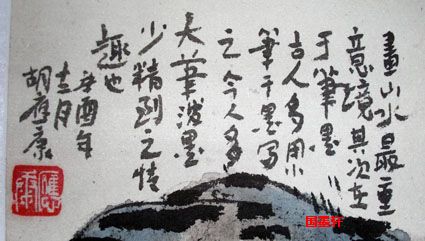 畫山水最重
意境其次在
于筆墨
古人多用小
筆干墨寫
之今人多
大筆潑墨
少精到之情
趣也
辛酉年
十二月
胡應康
應康
国画轩